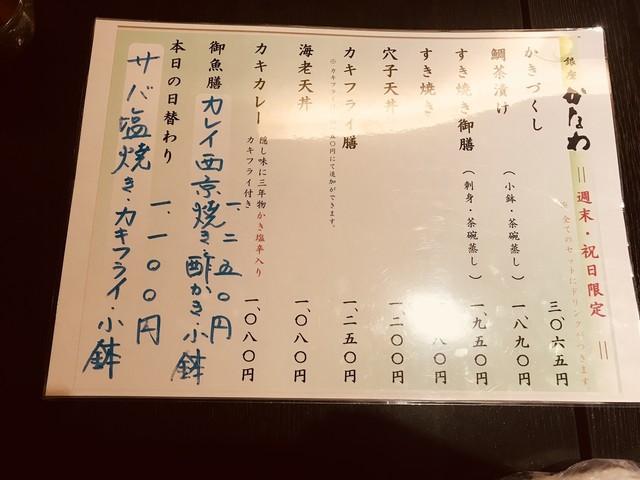 銀座 かなわ
＝週末・祝日限定＝
※ 全てのセットにドリンクがつきます
かきづくし 三、〇六五円
鯛茶漬け (小鉢・茶碗蒸し) 一、八九〇円
すき焼き御膳 (刺身・茶碗蒸し) 一、九五〇円
すき焼き 八〇円
穴子天丼 一、二〇〇円
カキフライ膳 一、二五〇円
※カキフライ 五〇円にて追加ができます。
海老天丼 一、〇八〇円
カキカレー 隠し味に三年物かき塩辛入り
カキフライ付き 一、〇八〇円
御魚膳 カレイ西京焼き・酢かき・小鉢
一、二五〇円
本日の日替わり 一、一〇〇円
サバ塩焼き・カキフライ・小鉢